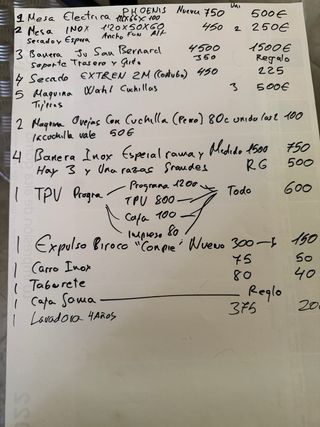 1 Mesa Electrica PHOENIS Nueva 750 Uni 500€
2 Mesa INOX 120x50x60 450 2 250€
Secado y Espera Ancho Fon Alt
3 Banera Ju San Bernard 4500 1500€
Soporte Trasero y 350 Regalo
4 Secado EXTREN 2M 450 225
5 Maquina Wahl Cuchillas 3 500€
Tijeras
2 Maquina Ovejas Con Cuchilla (Perro) 80€ unidad 100
1 cuchilla vale 50€
4 Banera Inox Especial rama y Medido 1500 750
Hay 3 y Una razas Grandes RG 500
1 TPV Progra Programa 1200 Todo 600
TPV 800
Caja 100
Impreso 80
1 Expulso Piroco "Compre" Nuevo 300 150
1 Carro Inox 75 50
1 Taburete 80 40
1 Caja Soma Reglo
1 Lavadora 4 Años 375 20